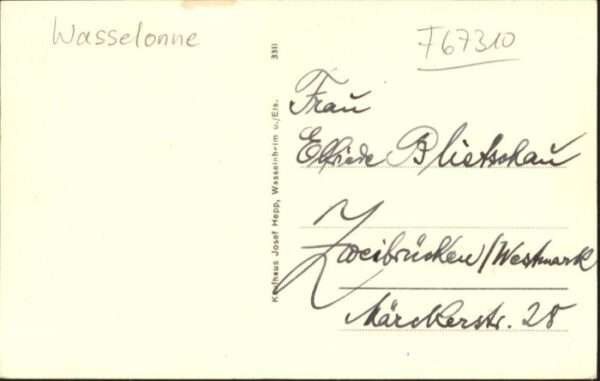 Wasselonne
F67310
Kaufhaus Josef Hepp, Wasselnheim u./Els. 3311
Frau
Elfriede Blietschau
Zweibrücken/Westmark
Märckerstr. 28